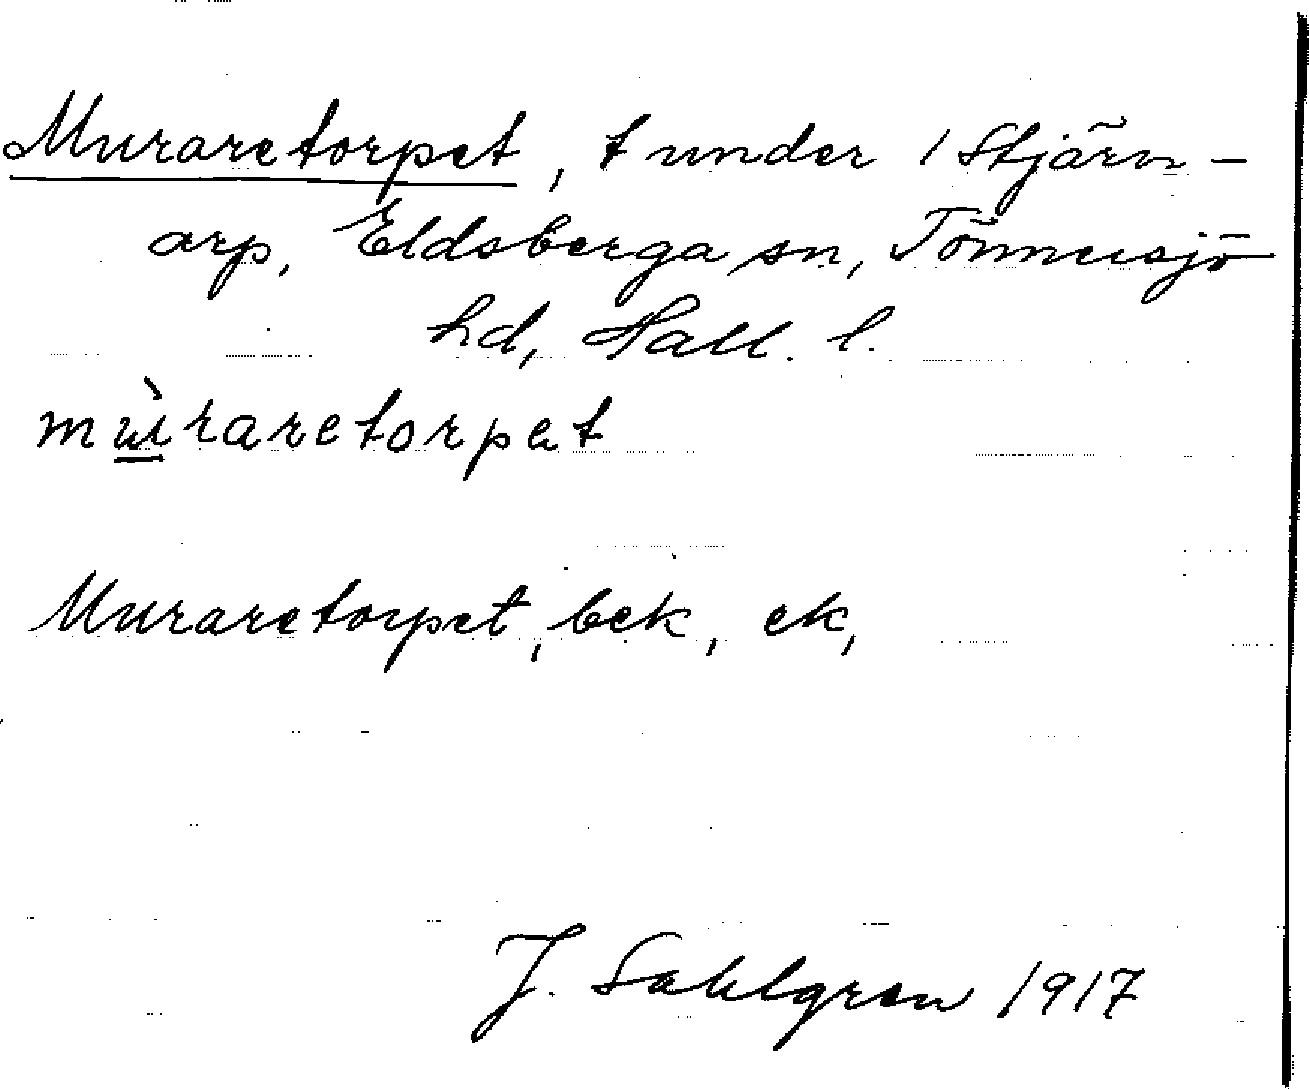 Muraretorpet, t under 1 Stjärn-
arp, Eldsberga sn, Tönnersjö
hd, Hall. l.
mùraretorpet
Muraretorpet, bek, ek,
J. Sahlgren 1917